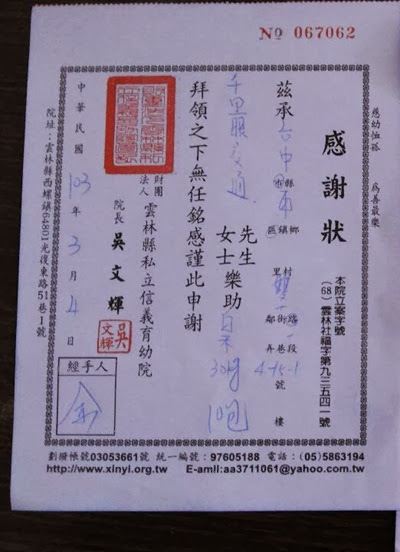 No 067062
慈幼恤孤 為善最樂
感謝狀
本院立案字號
(68)雲林社福字第九三五四一號
茲承台中縣市鄉鎮區村里路街段巷弄號樓
千里眼交通 先生女士樂助白米30斤10包
拜領之下無任銘感謹此申謝
財團法人雲林縣私立信義育幼院
院長 吳文輝
吳文輝
中華民國103年3月4日
院址:雲林縣西螺鎮64801光復東路51巷1號
經手人
劃撥帳號03053661號 統一編號:97605188 電話:(05)5863194
http://www.xinyi.org.tw E-amil:aa3711061@yahoo.com.tw